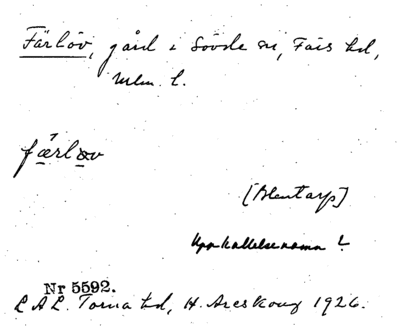 Färlöv, gård i Sövde sn, Färs hd,
Mlm. l.
færlǝv
[Blentarp]
Uppkallelsenamn?
Nr 5592.
L A L. Torna hd, H. Areskoug 1926.